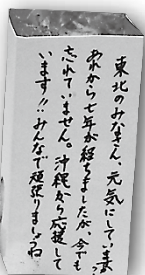 東北のみなさん、元気にしていますか
あれから七年が経ちましたが、今でも
忘れていません。沖縄から応援して
います!!みんなで頑張りましょうね